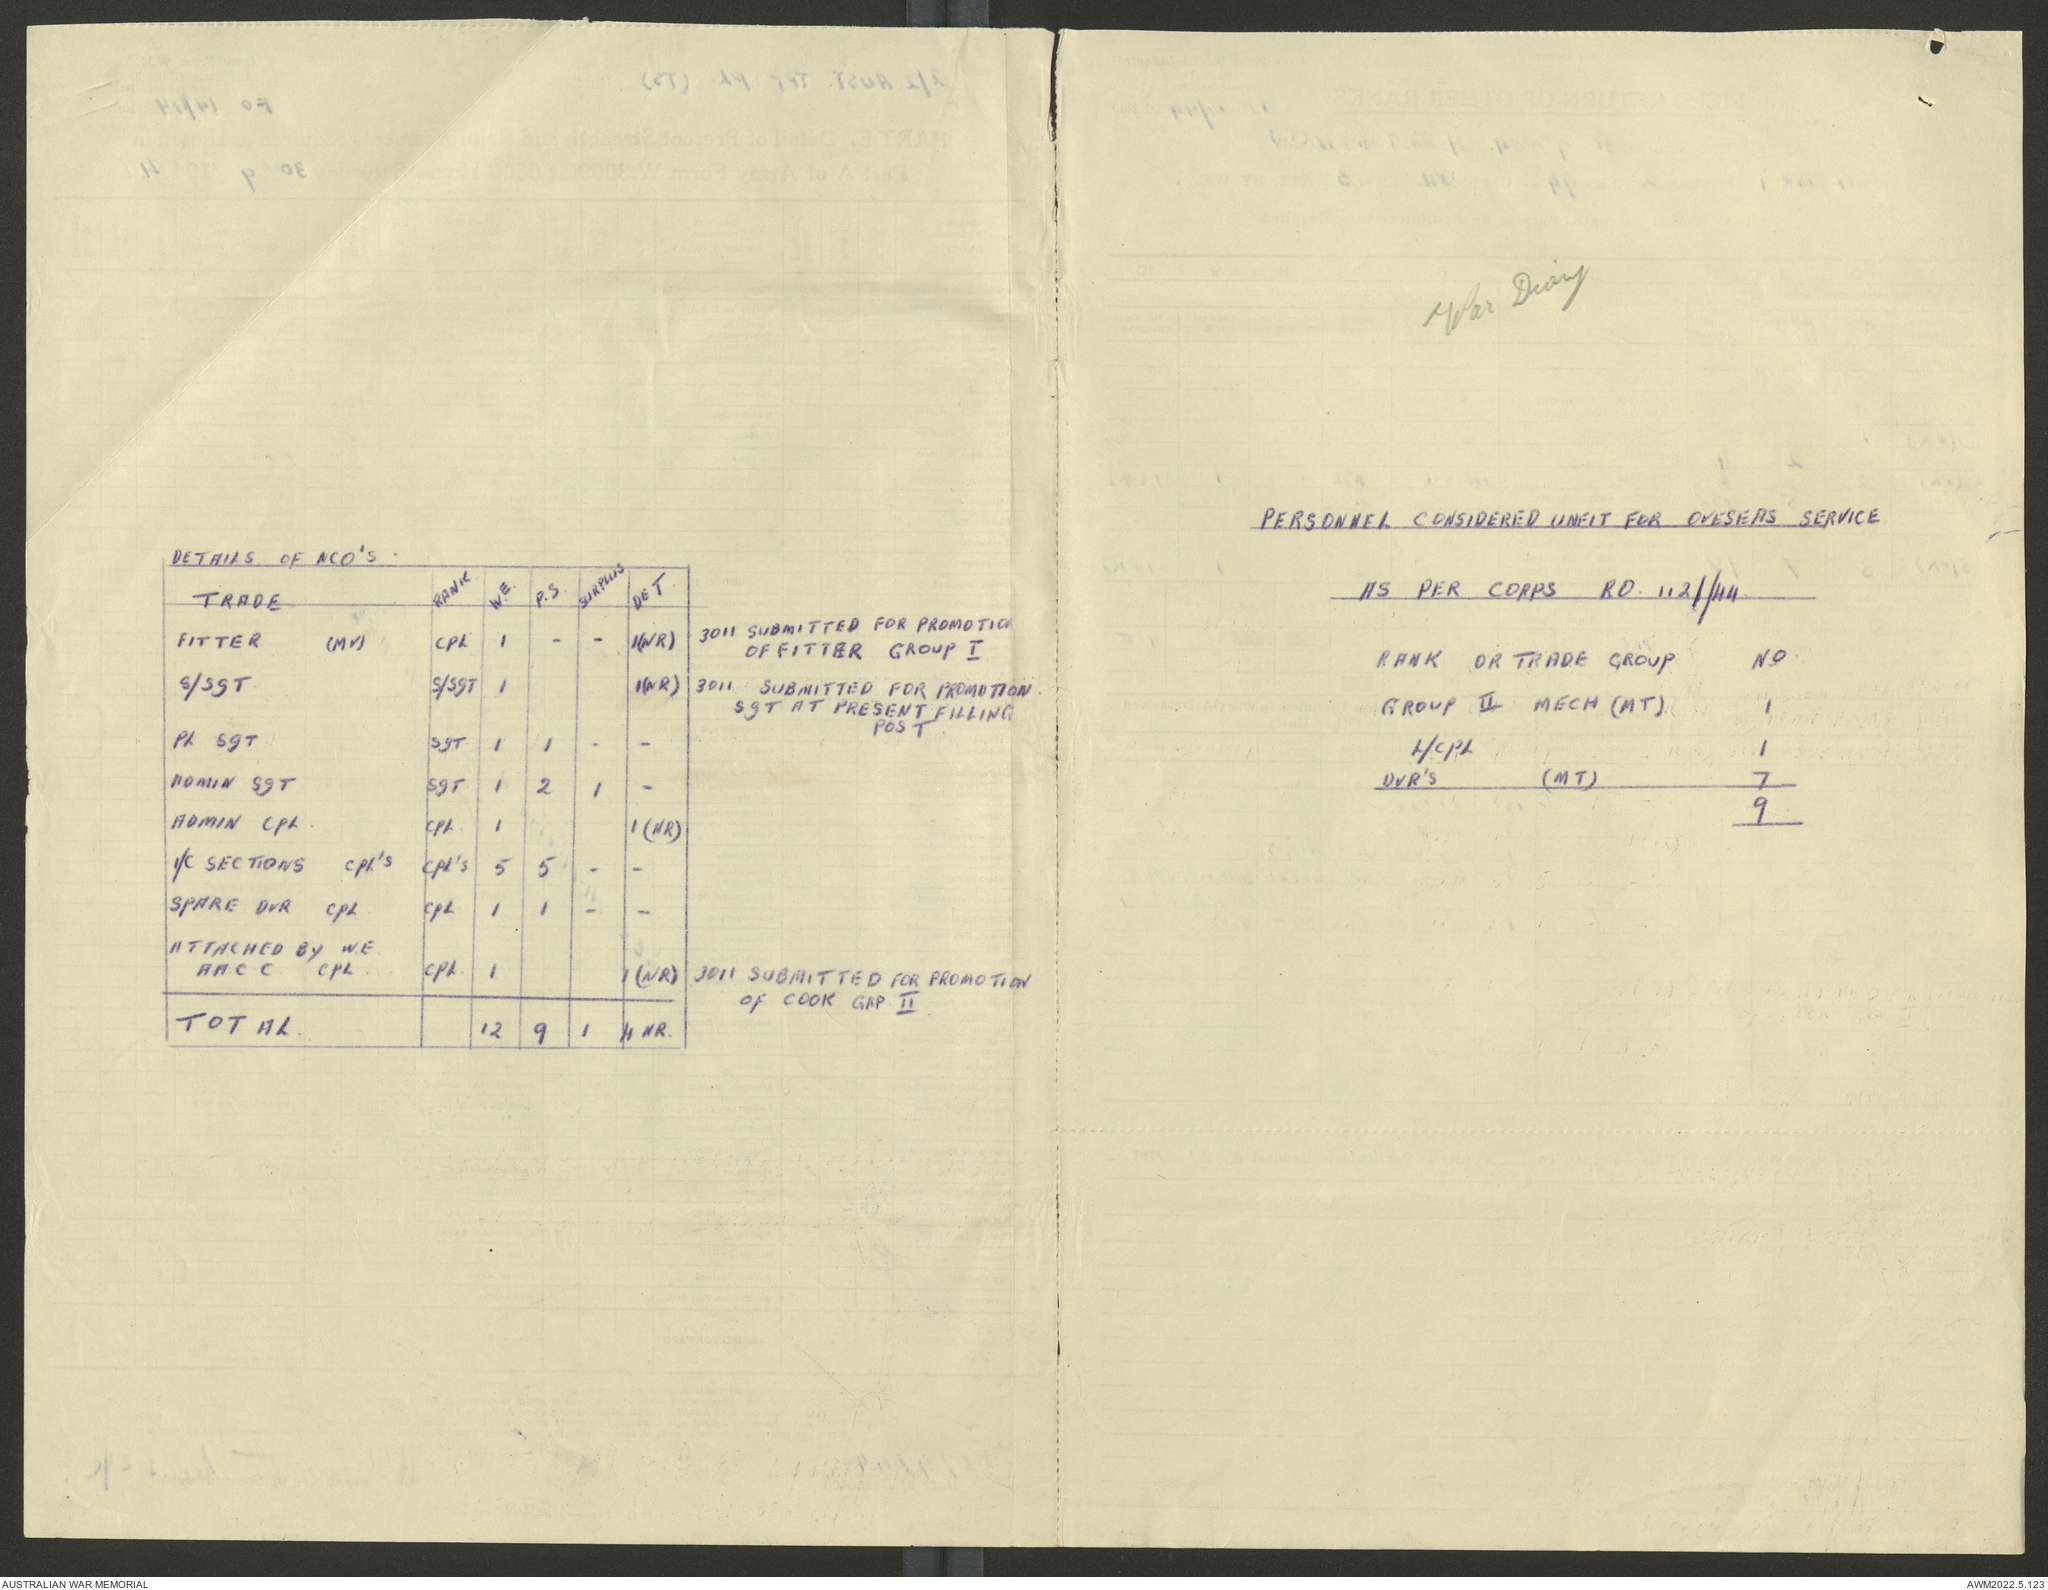 DETAILS OF NCO'S.
TRADE RANK W.E. P.S SURPLUS DET
FITTER (MV) CPL 1 - - 1(NR) 3011 SUBMITTED FOR PROMOTION
OF FITTER GROUP I
S/SGT S/SGT 1 1(NR) 3011 SUBMITTED FOR PROMOTION.
SGT AT PRESENT FILLING
POST
PL SGT SGT 1 1 - -
ADMIN SGT SGT 1 2 1 -
ADMIN CPL. CPL. 1 1(NR)
I/C SECTIONS CPL'S CPL'S 5 5 - -
SPARE DVR CPL CPL 1 1 - -
ATTACHED BY W.E.
AACC CPL. CPL. 1 1(NR) 3011 SUBMITTED FOR PROMOTION
OF COOK GRP II
TOTAL. 12 9 1 4 NR.
War Diary
PERSONNEL CONSIDERED UNFIT FOR OVESEAS SERVICE
AS PER CORPS RO. 112//44
RANK OR TRADE GROUP NO
GROUP II MECH (MT) 1
L/CPL 1
DVR'S (MT) 7
9
AUSTRALIAN WAR MEMORIAL
AWM2022.5.123